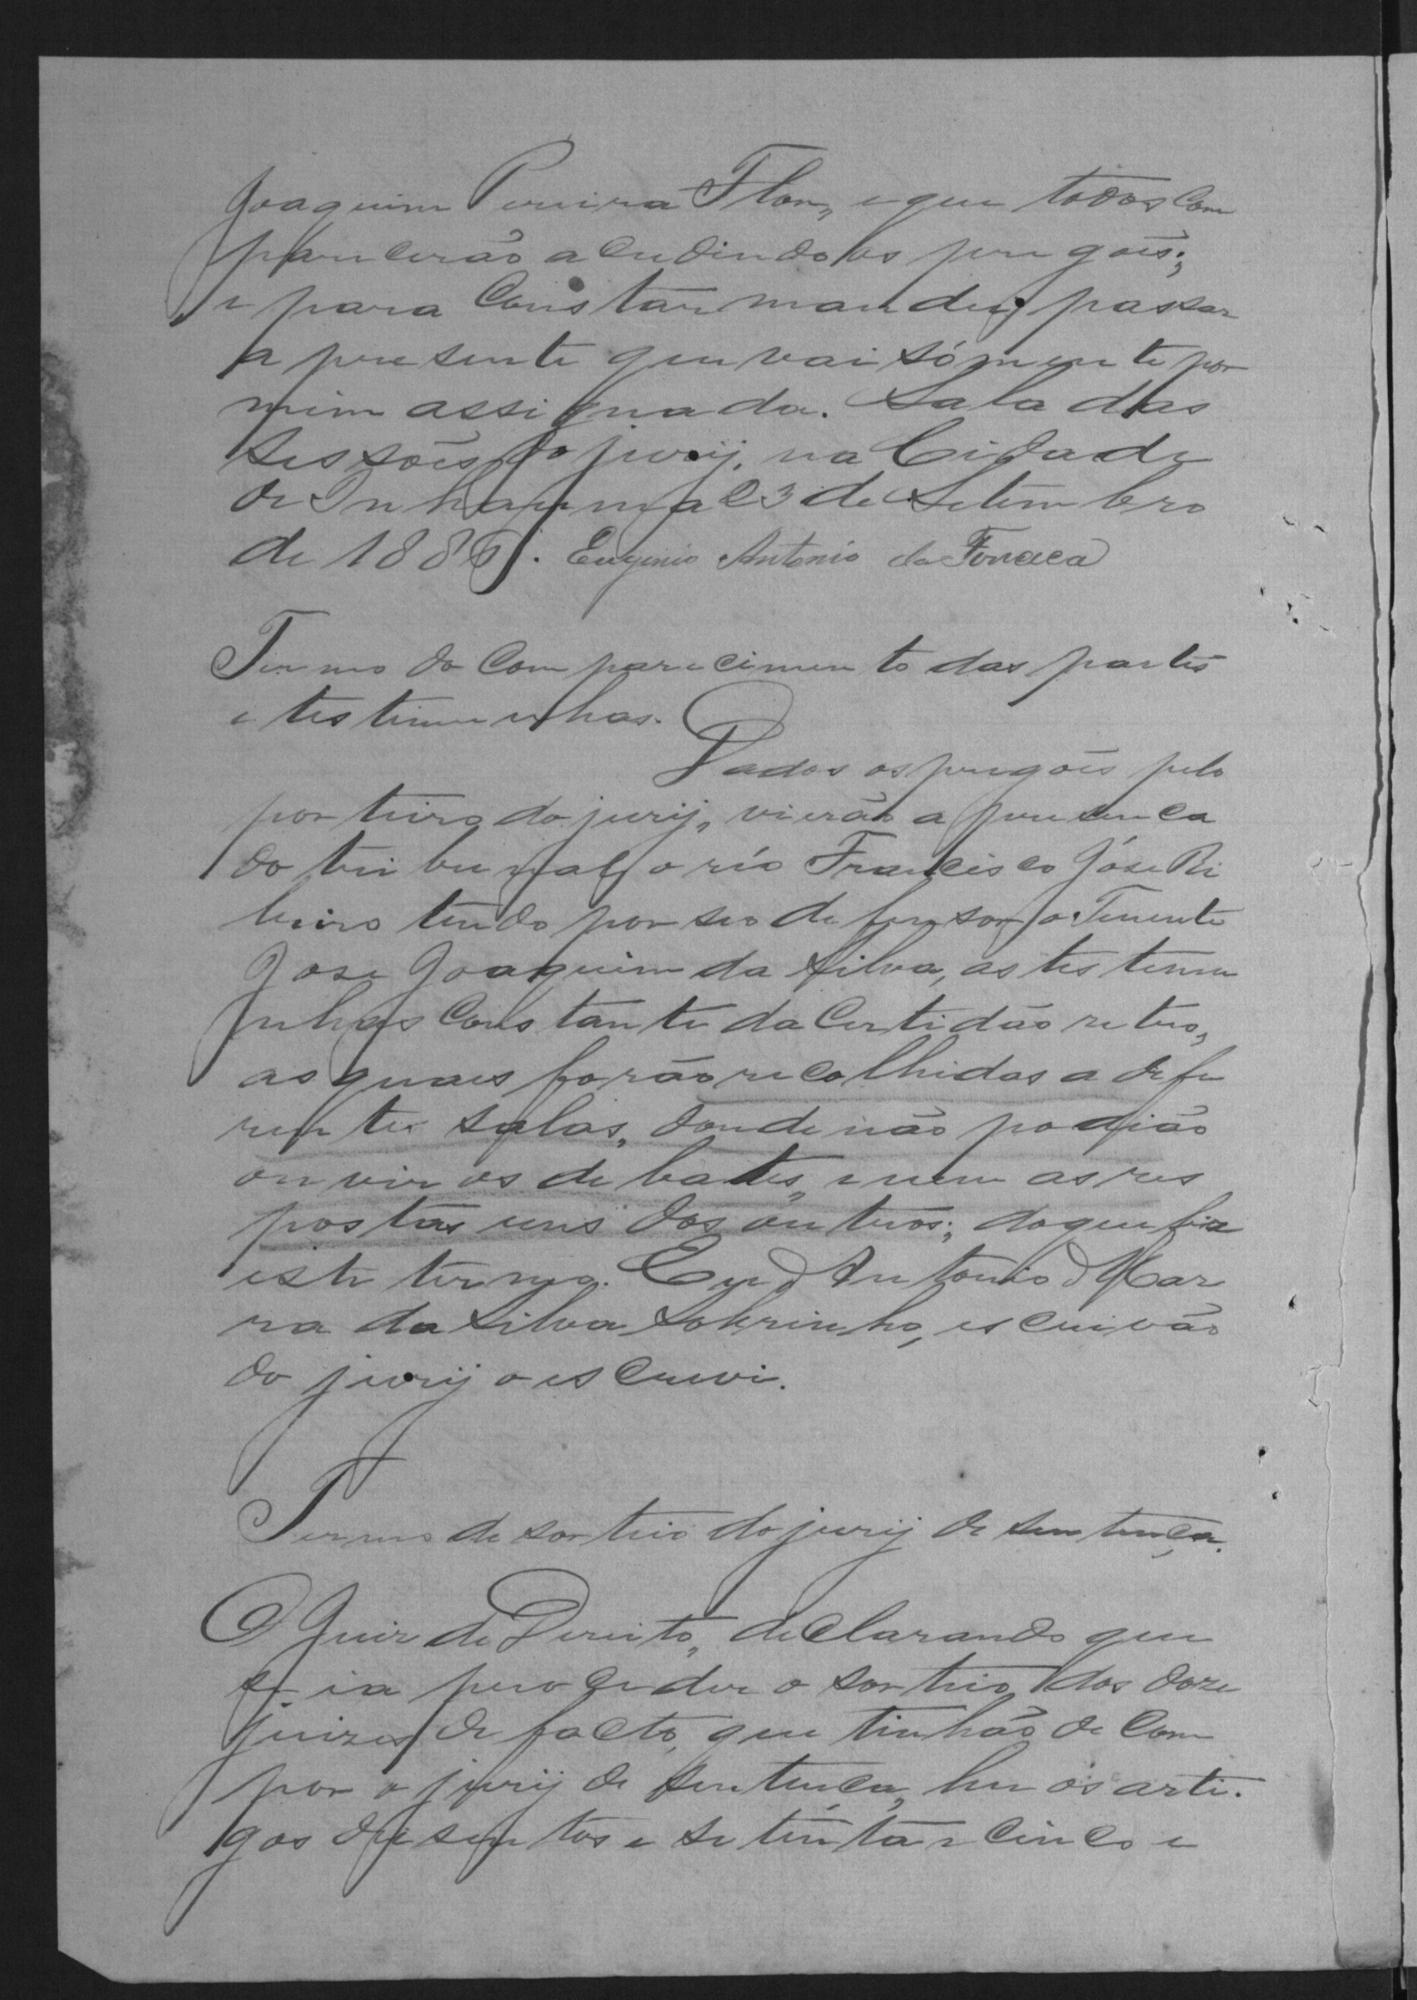 Joaquim Pereira Flor, e que todos com
parecerão acudindo os pregões;
e para constar mandei passar
a presente que vai sómente por
mim assignada. Sala das
Sessões do jury, na Cidade
de Inhauma 23 de Setembro
de 1886. Eugenio Antonio da Fonceca
Termo do comparecimento das partes
e testimunhas.
Dados os pregões pelo
porteiro do jury, vierão a presenca
do tribunal, o réo Francisco José Ri
beiro tendo por seo defensor o Tenente
José Joaquim da Silva, as testemu
nhas constante da certidão retro,
as quaes forão recolhidas a defe
rentes salas, donde não podião
ouvir os debates, e nem as res
postas uns dos outros; do que fiz
este termo. Eu Antonio Mar
ra da Silva Sobrinho, escrivão
do jury o escrevi.
Termo de sorteio do jury de sentença.
O Juiz de Direito, declarando que
se ia proceder o sorteio dos doze
juizes de facto, que tinhão de com
por o jury de sentença, leu os arti-
gos dusentos e setenta e cinco e